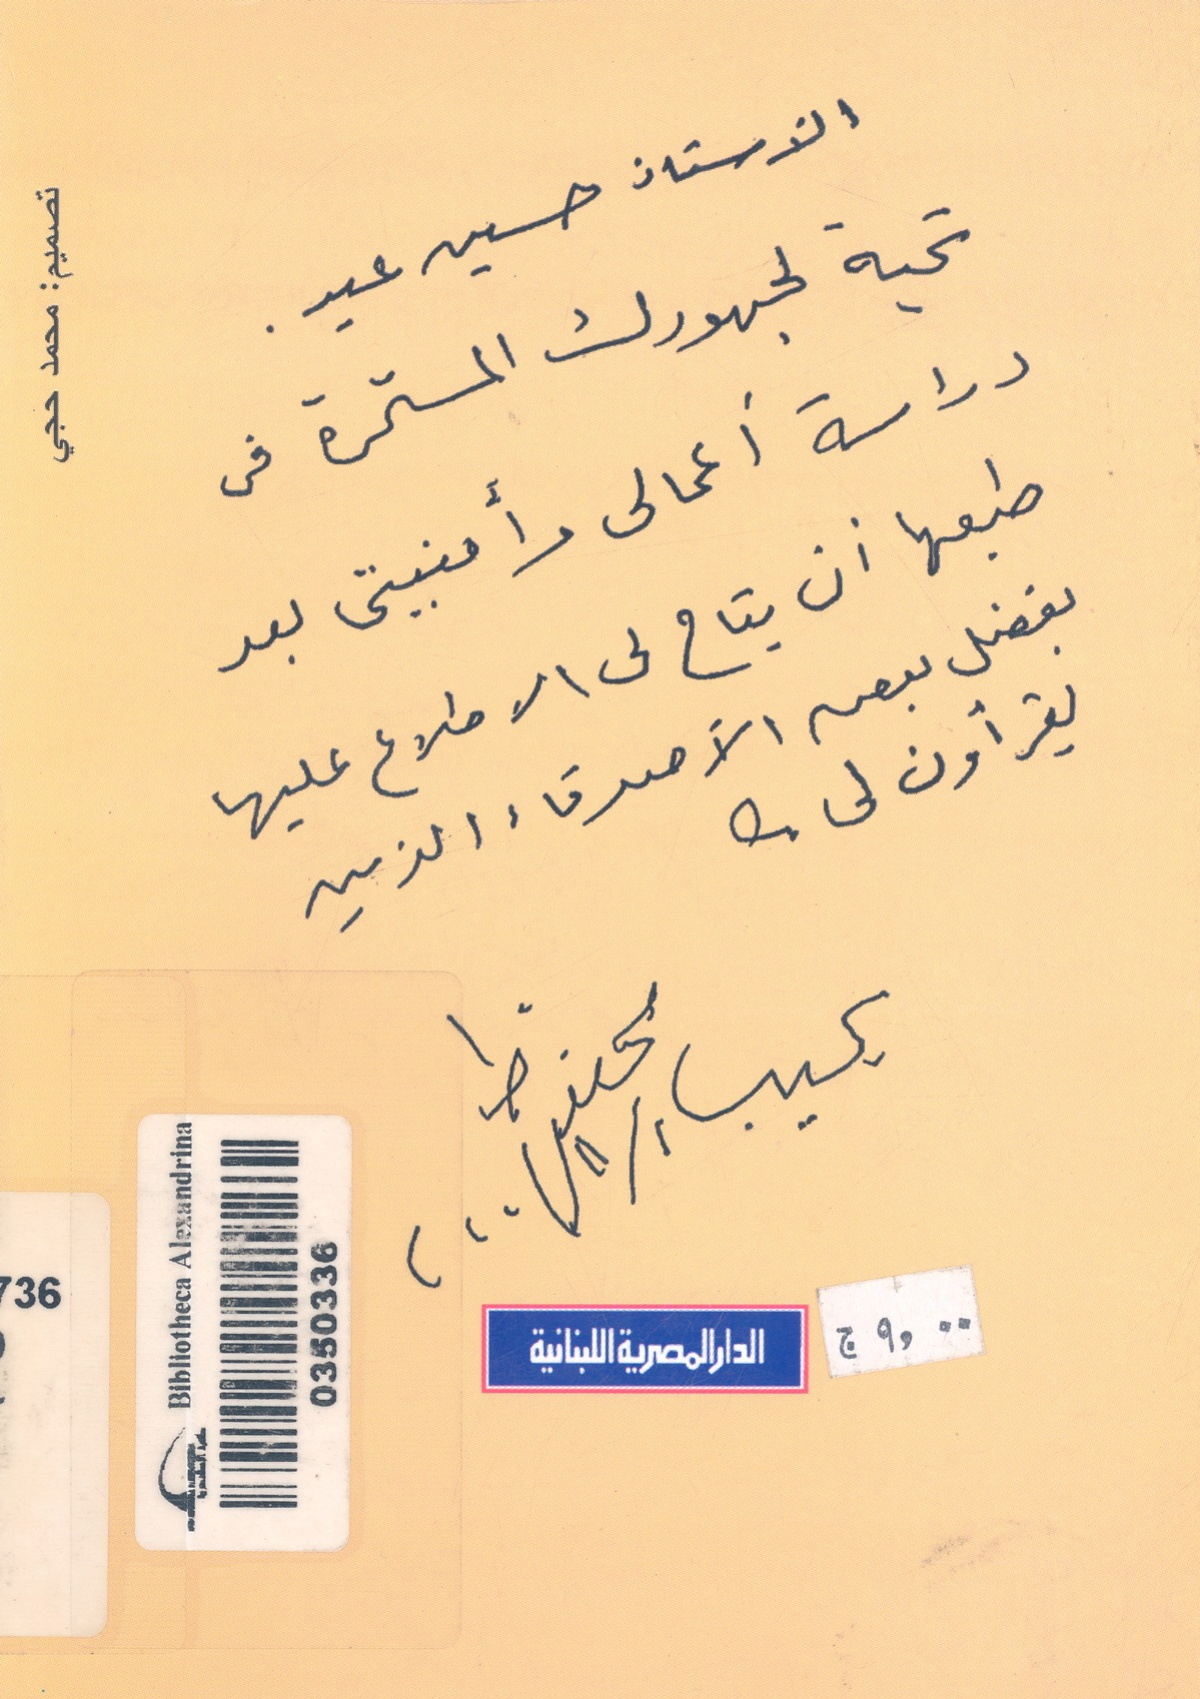 الأستاذ حسين عيد.
تحية لجهودك المستمرة فى
دراسة أعمالى وأمنيتى بعد
طبعها أن يتاح لى الاطلاع عليها
بفضل بعض الأصدقاء الذين
يقرأون لى
نجيب محفوظ
تصميم: محمد حجي
الدار المصرية اللبنانية
٩,٠٠ ج
Bibliotheca Alexandrina
0350336
736